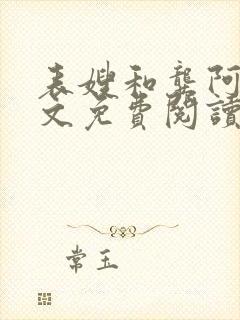 表嫂和龔阿
文免費閱讀
常玉